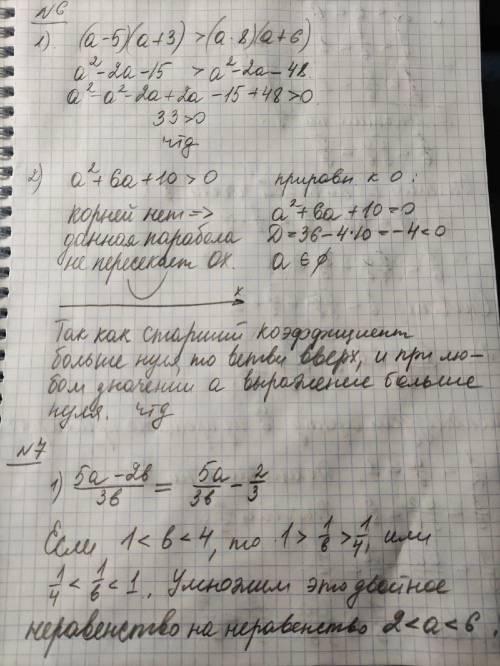 №6
1). (a-5)(a+3) > (a-8)(a+6)
a²-2a-15 > a²-2a-48
a²-a²-2a+2a-15+48>0
33>0
чтд
2) a²+6a+10>0 приравн к 0:
корней нет => a²+6a+10=0
данная парабола D=36-4·10=-4<0
не пересекает OX. a∈∅
x
Так как старший коэффициент
больше нуля, то ветви вверх, и при лю-
бом значении a выражение больше
нуля. чтд
№7
1) (5a-2b)/3b = 5a/3b - 2/3
Если 1<b<4, то 1>1/b>1/4, или
1/4<1/b<1. Умножим это двойное
неравенство на неравенство 2<a<6.